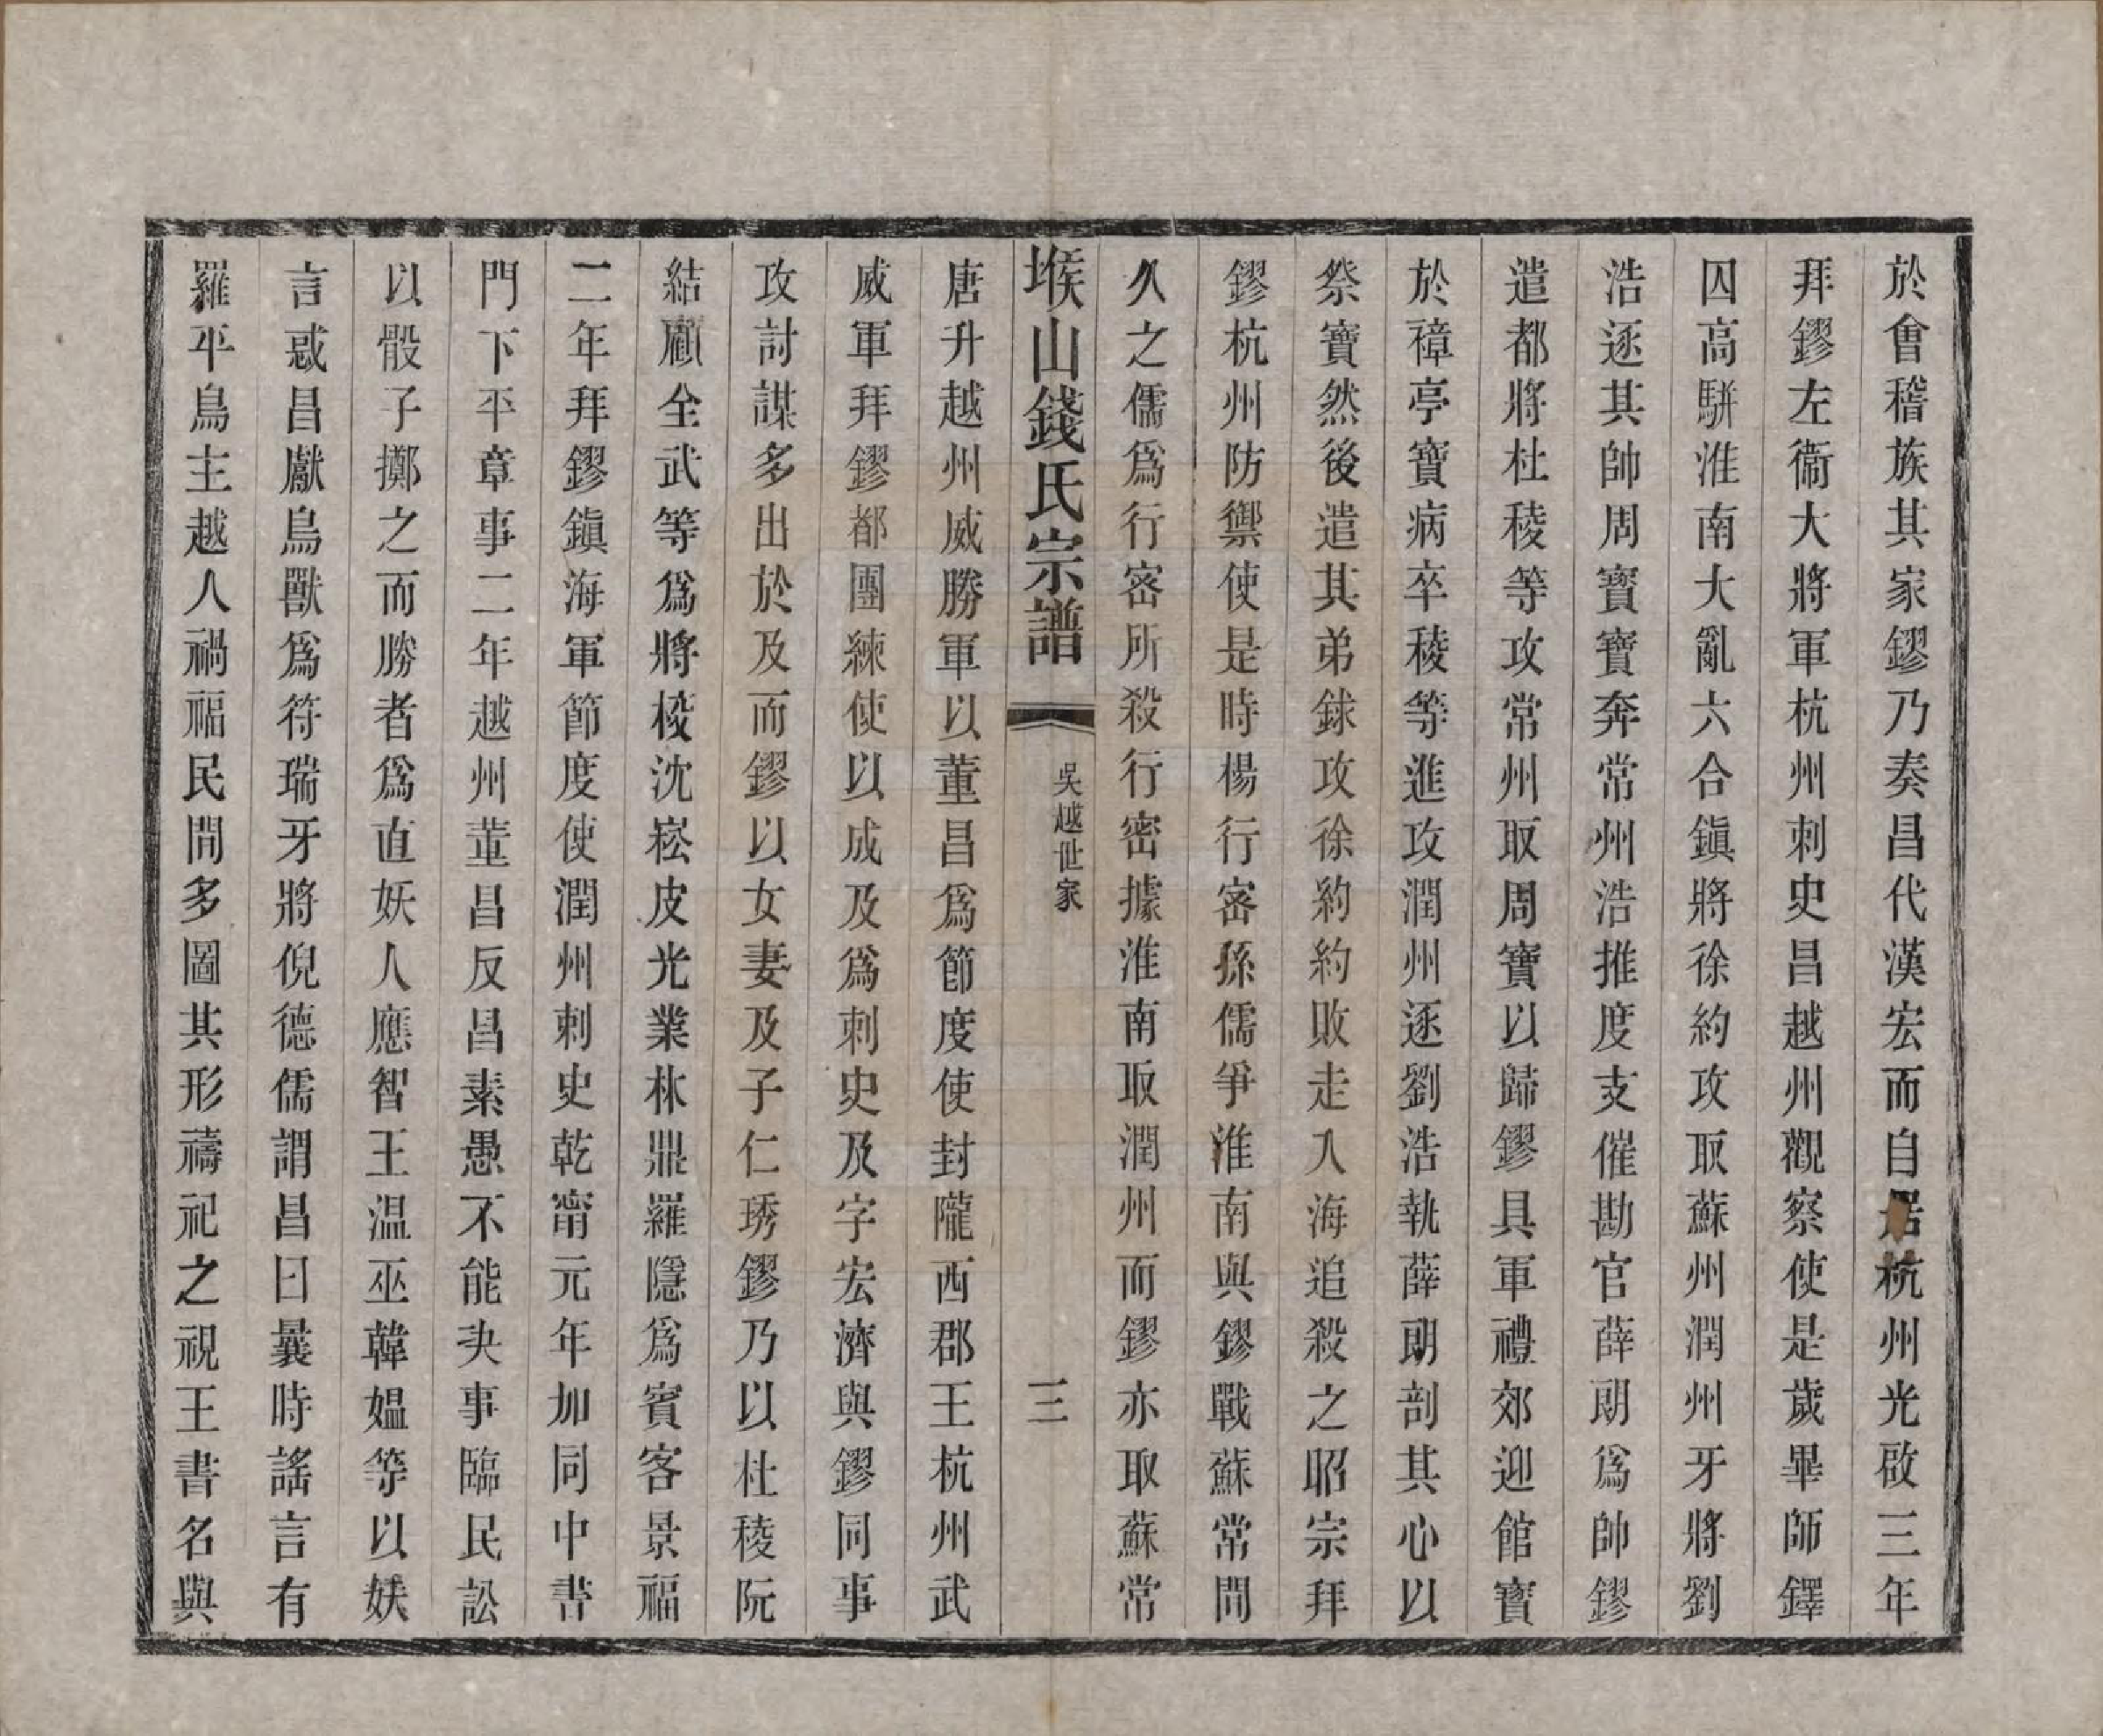 於會稽族其家鏐乃奏昌代漢宏而自居杭州光啟三年
拜鏐左衞大將軍杭州刺史昌越州觀察使是歲畢師鐸
囚高駢淮南大亂六合鎭將徐約攻取蘇州潤州牙將劉
浩逐其帥周寶寶奔常州浩推度支催勘官薛朗爲帥鏐
遣都將杜稜等攻常州取周寶以歸鏐具軍禮郊迎館寶
於樟亭寶病卒稜等進攻潤州逐劉浩執薛朗剖其心以
祭寶然後遣其弟銶攻徐約約敗走入海追殺之昭宗拜
鏐杭州防禦使是時楊行密孫儒爭淮南與鏐戰蘇常間
久之儒爲行密所殺行密據淮南取潤州而鏐亦取蘇常
堠山錢氏宗譜 吳越世家 三
唐升越州威勝軍以董昌爲節度使封隴西郡王杭州武
威軍拜鏐都團練使以成及爲刺史及字宏濟與鏐同事
攻討謀多出於及而鏐以女妻及子仁琇鏐乃以杜稜阮
結顧全武等爲將校沈崧皮光業林鼎羅隱爲賓客景福
二年拜鏐鎭海軍節度使潤州刺史乾甯元年加同中書
門下平章事二年越州董昌反昌素愚不能決事臨民訟
以骰子擲之而勝者爲直妖人應智王温巫韓媼等以妖
言惑昌獻鳥獸爲符瑞牙將倪德儒謂昌曰曩時謠言有
羅平鳥主越人禍福民間多圖其形禱祀之視王書名與